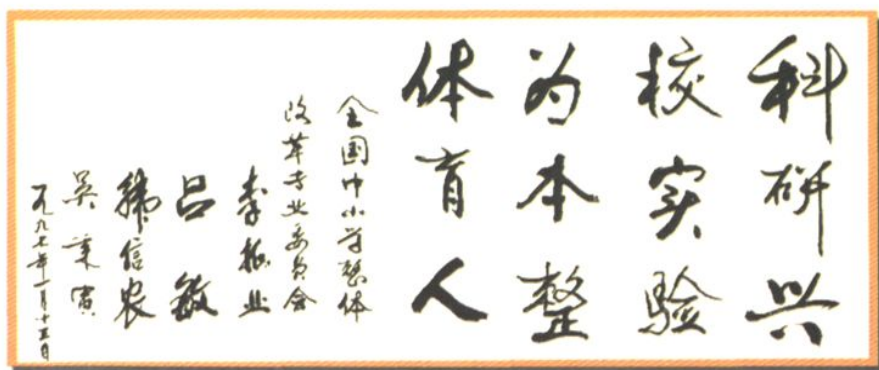 科研兴
校实验
为本整
体育人
全国中小学整体
改革专业委员会
李振业
吕敏
韩信农
吴秉寅
一九九七年一月十五日